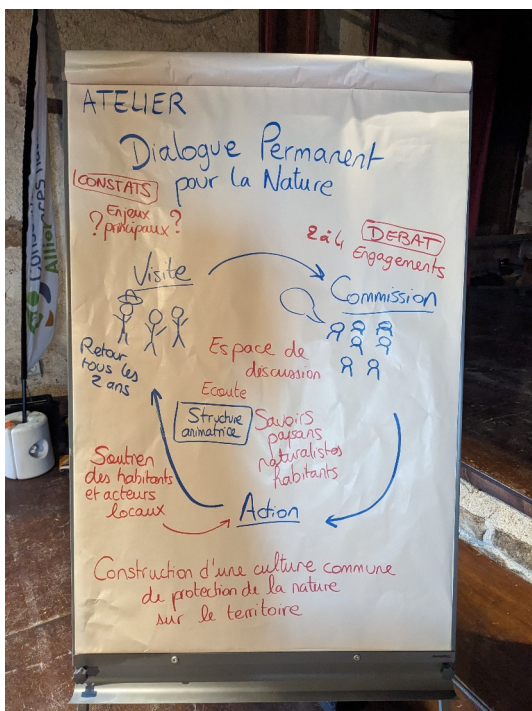 ATELIER
Dialogue Permanent
pour la Nature
CONSTATS
? Enjeux ?
principaux
2 à 4
DEBAT
Engagements
Visite
Commission
Retour
tous les
2 ans
Espace de
discussion
Ecoute
Structure
animatrice
Savoirs
paysans
naturalistes
habitants
Soutien
des habitants
et acteurs
locaux
Action
Construction d'une culture commune
de protection de la nature
sur le territoire
Allier